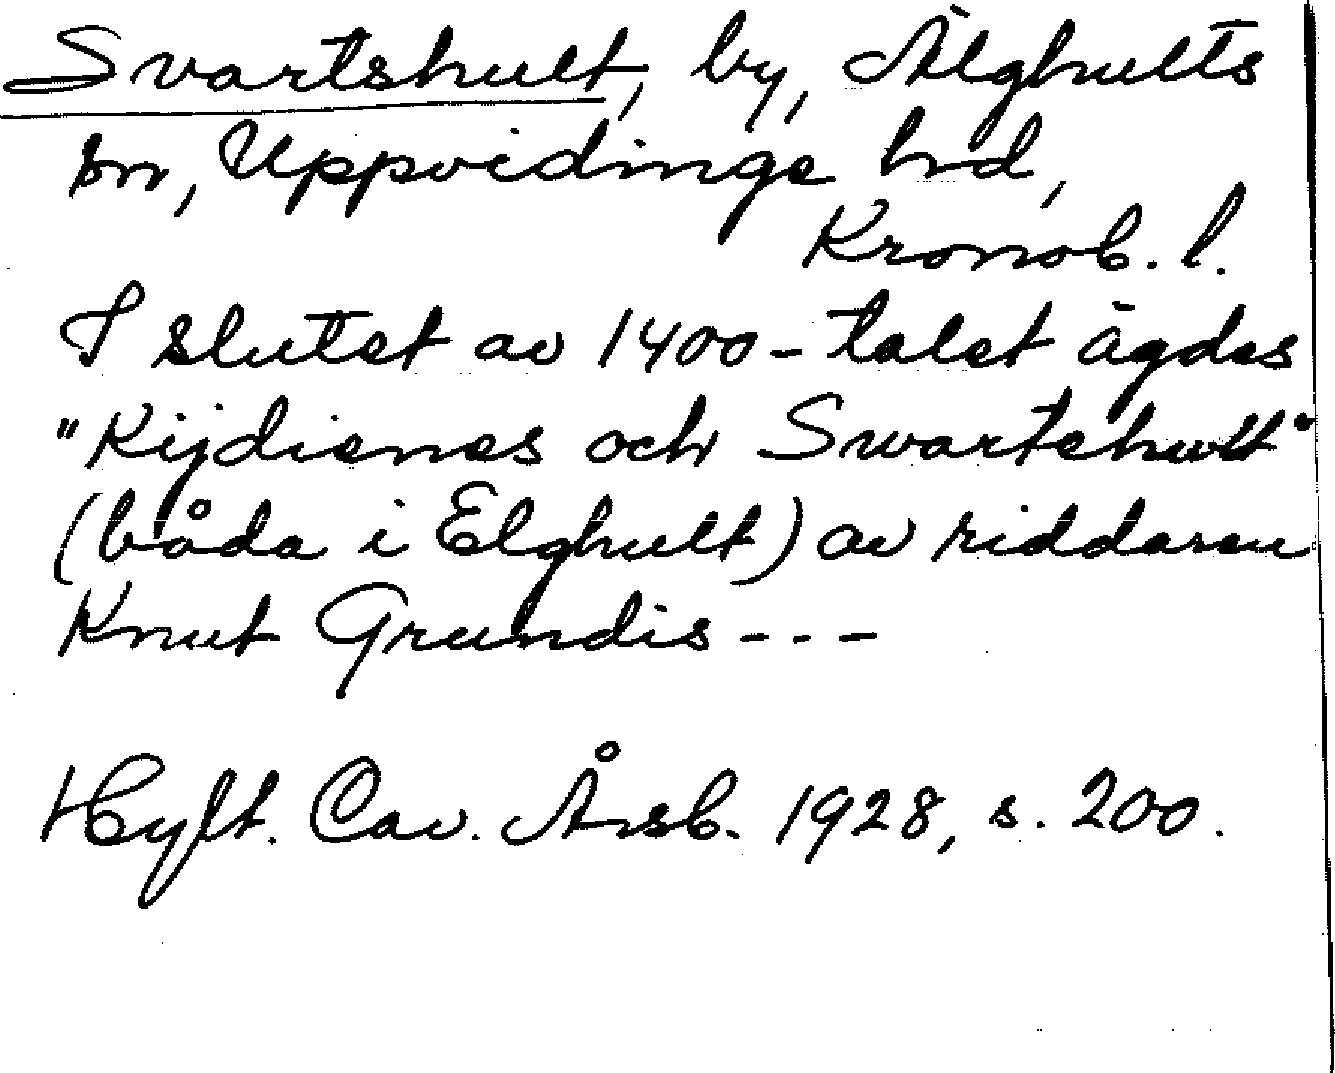 Svartshult, by, Älghults
sn, Uppvidinge hrd,
Kronob. l.
I slutet av 1400-talet ägdes
"Kijdienes och Swartehult"
(båda i Elghult) av riddaren
Knut Grundis - - -
Hylt. Cav. Årsb. 1928, s. 200.